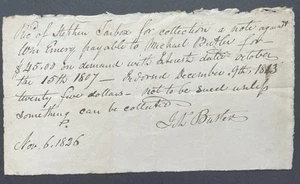 Rec of Stephen Tarbox for collection a note against
Wm Emery payable to Michael Butler for
$45.00 on demand with Interest dated October
the 15th 1807 — Indorsed December 9th 1813
twenty five dollars — not to be sued unless
something can be collected
Nov. 6. 1826